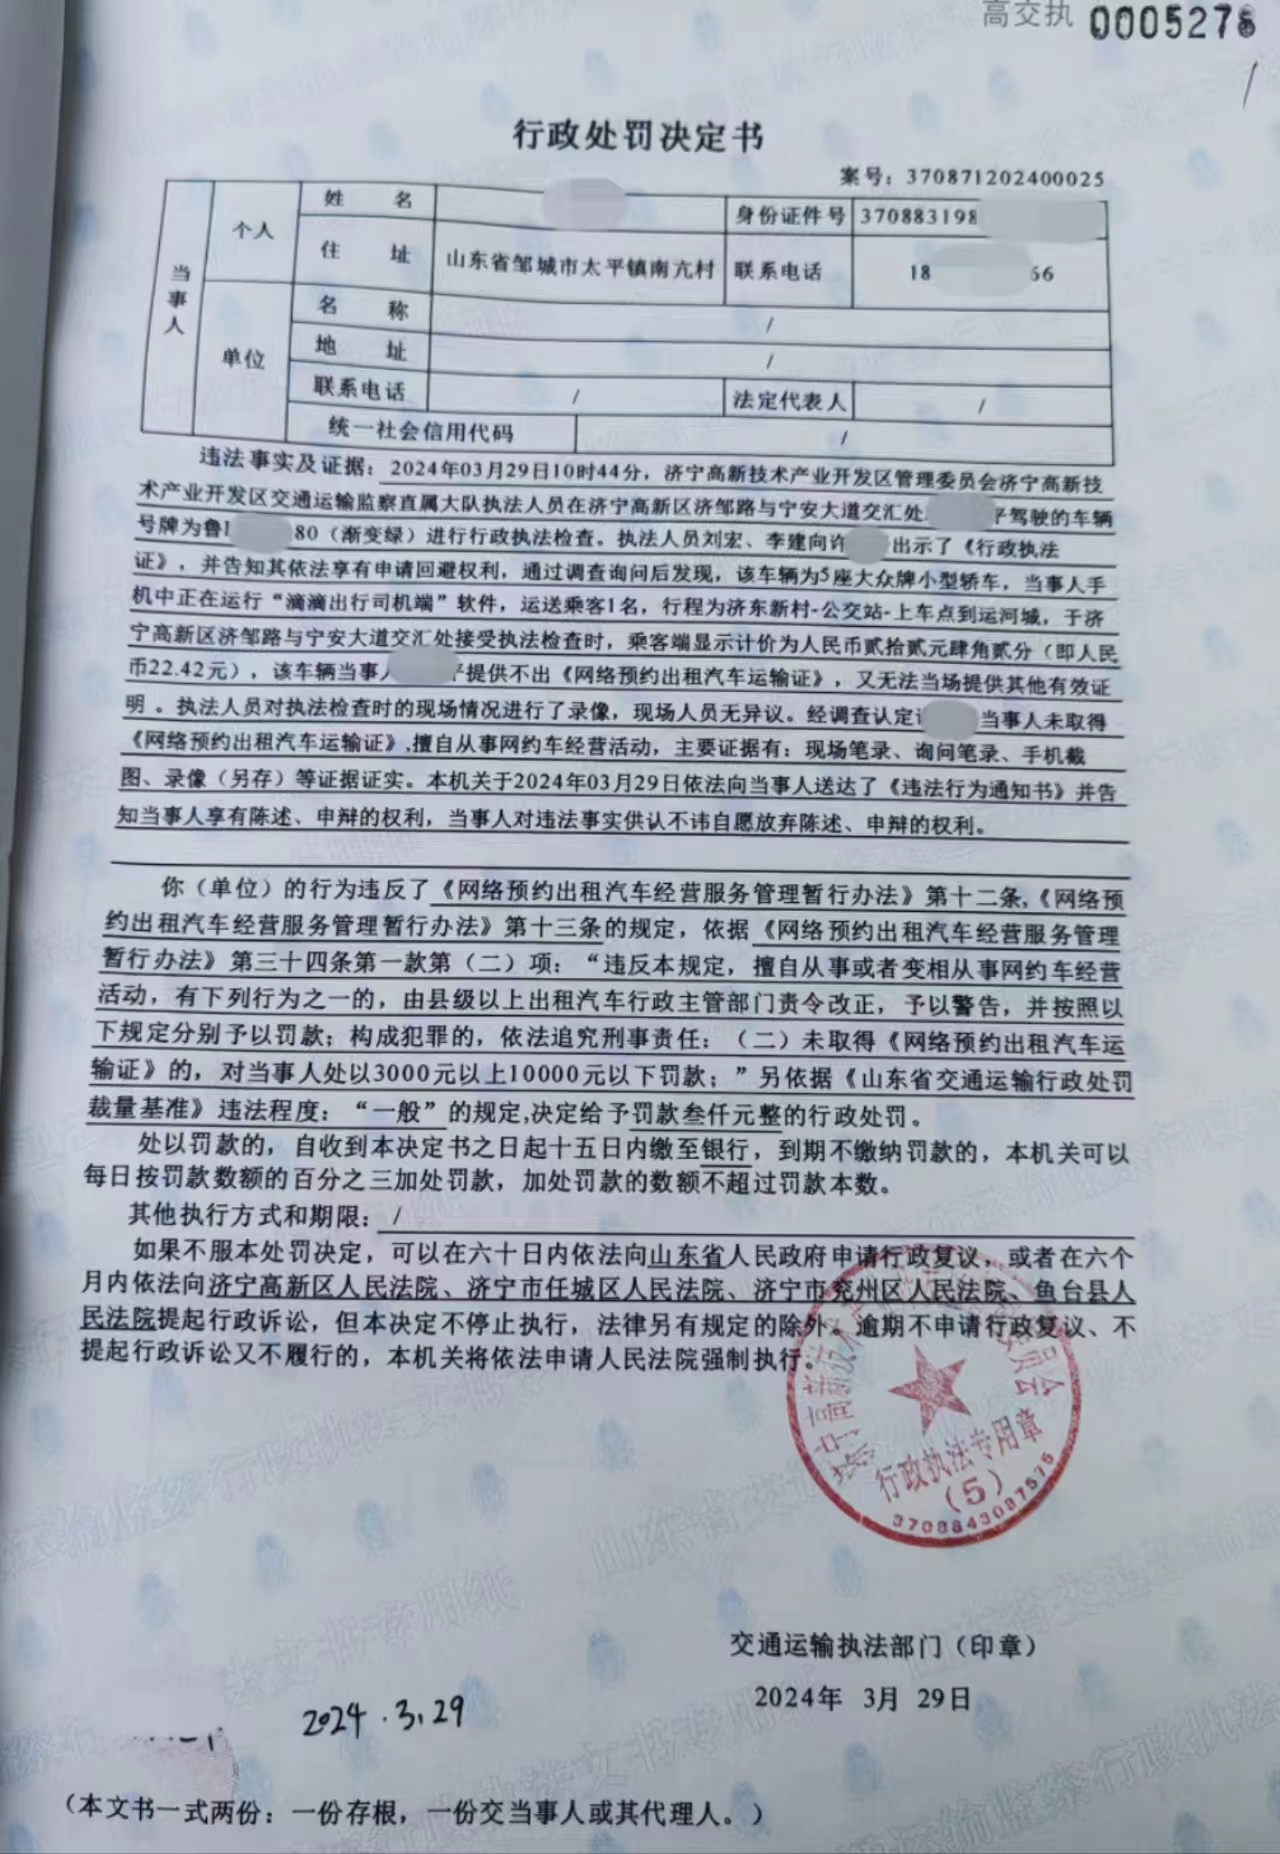 高交执 0005275
行政处罚决定书
案号：370871202400025
当事人
个人
姓 名
身份证件号
370883198
住 址
山东省邹城市太平镇南亢村
联系电话
18 66
单位
名 称
/
地 址
/
联系电话
/
法定代表人
/
统一社会信用代码
/
违法事实及证据：2024年03月29日10时44分，济宁高新技术产业开发区管理委员会济宁高新技
术产业开发区交通运输监察直属大队执法人员在济宁高新区济邹路与宁安大道交汇处 平驾驶的车辆
号牌为鲁 80（渐变绿）进行行政执法检查。执法人员刘宏、李建向许 出示了《行政执法
证》，并告知其依法享有申请回避权利，通过调查询问后发现，该车辆为5座大众牌小型轿车，当事人手
机中正在运行“滴滴出行司机端”软件，运送乘客1名，行程为济东新村-公交站-上车点到运河城，于济
宁高新区济邹路与宁安大道交汇处接受执法检查时，乘客端显示计价为人民币贰拾贰元肆角贰分（即人民
币22.42元），该车辆当事人 平提供不出《网络预约出租汽车运输证》，又无法当场提供其他有效证
明 。执法人员对执法检查时的现场情况进行了录像，现场人员无异议。经调查认定 当事人未取得
《网络预约出租汽车运输证》,擅自从事网约车经营活动，主要证据有：现场笔录、询问笔录、手机截
图、录像（另存）等证据证实。本机关于2024年03月29日依法向当事人送达了《违法行为通知书》并告
知当事人享有陈述、申辩的权利，当事人对违法事实供认不讳自愿放弃陈述、申辩的权利。
你（单位）的行为违反了《网络预约出租汽车经营服务管理暂行办法》第十二条,《网络预
约出租汽车经营服务管理暂行办法》第十三条的规定，依据《网络预约出租汽车经营服务管理
暂行办法》第三十四条第一款第（二）项：“违反本规定，擅自从事或者变相从事网约车经营
活动，有下列行为之一的，由县级以上出租汽车行政主管部门责令改正，予以警告，并按照以
下规定分别予以罚款；构成犯罪的，依法追究刑事责任：（二）未取得《网络预约出租汽车运
输证》的，对当事人处以3000元以上10000元以下罚款；”另依据《山东省交通运输行政处罚
裁量基准》违法程度：“一般”的规定,决定给予罚款叁仟元整的行政处罚。
处以罚款的，自收到本决定书之日起十五日内缴至银行，到期不缴纳罚款的，本机关可以
每日按罚款数额的百分之三加处罚款，加处罚款的数额不超过罚款本数。
其他执行方式和期限：/
如果不服本处罚决定，可以在六十日内依法向山东省人民政府申请行政复议，或者在六个
月内依法向济宁高新区人民法院、济宁市任城区人民法院、济宁市兖州区人民法院、鱼台县人
民法院提起行政诉讼，但本决定不停止执行，法律另有规定的除外。逾期不申请行政复议、不
提起行政诉讼又不履行的，本机关将依法申请人民法院强制执行。
行政执法专用章
（5）
3708843087575
交通运输执法部门（印章）
2024年 3月 29日
2024.3.29
（本文书一式两份：一份存根，一份交当事人或其代理人。）